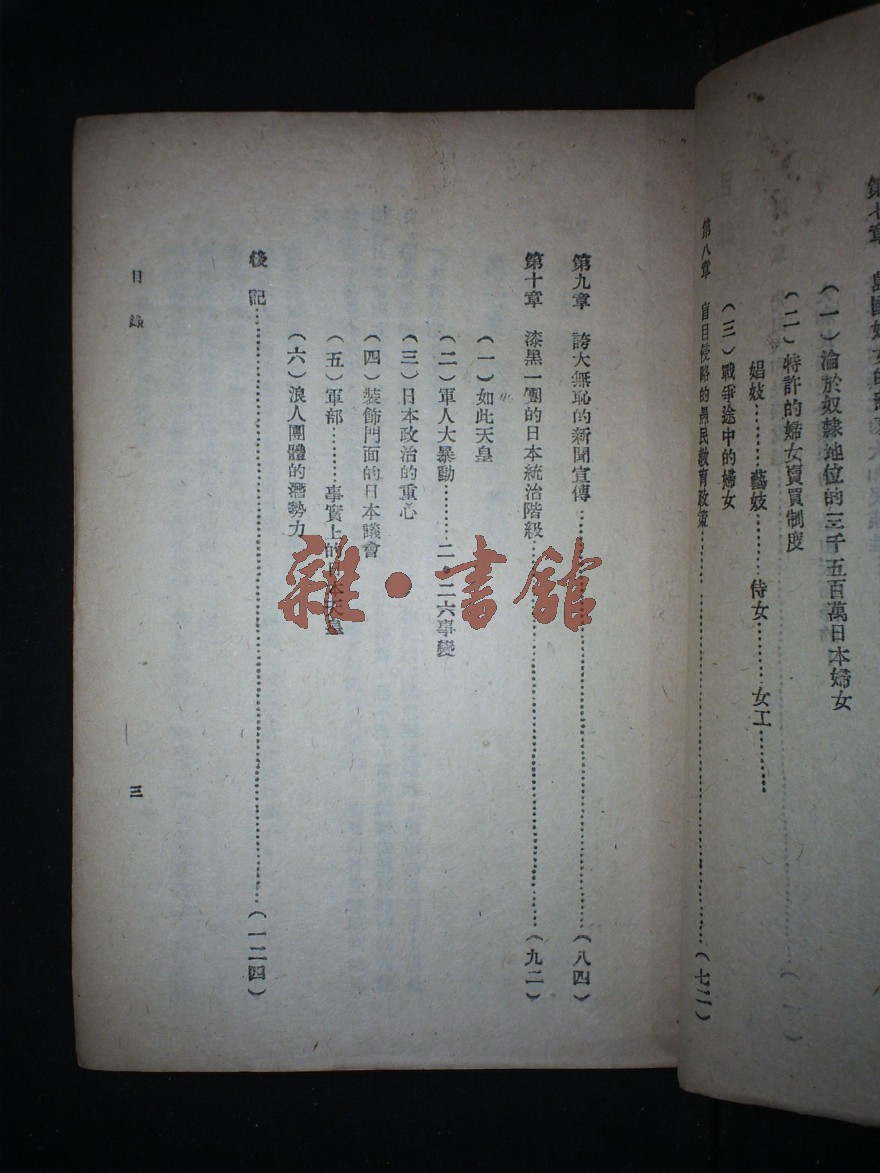 第七章 島國婦女的
(一)淪於奴隸地位的三千五百萬日本婦女
(二)特許的婦女賣買制度
娼妓………藝妓………侍女………女工………
(三)戰爭途中的婦女
第八章 盲目侵略的愚民教育政策………(七二)
第九章 誇大無恥的新聞宣傳………(八四)
第十章 漆黑一團的日本統治階級………(九二)
(一)如此天皇
(二)軍人大暴動………二·二六事變
(三)日本政治的重心
(四)裝飾門面的日本議會
(五)軍部………事實上的日本天皇
(六)浪人團體的潛勢力
後記………(一二四)
目錄
三
雜·書館